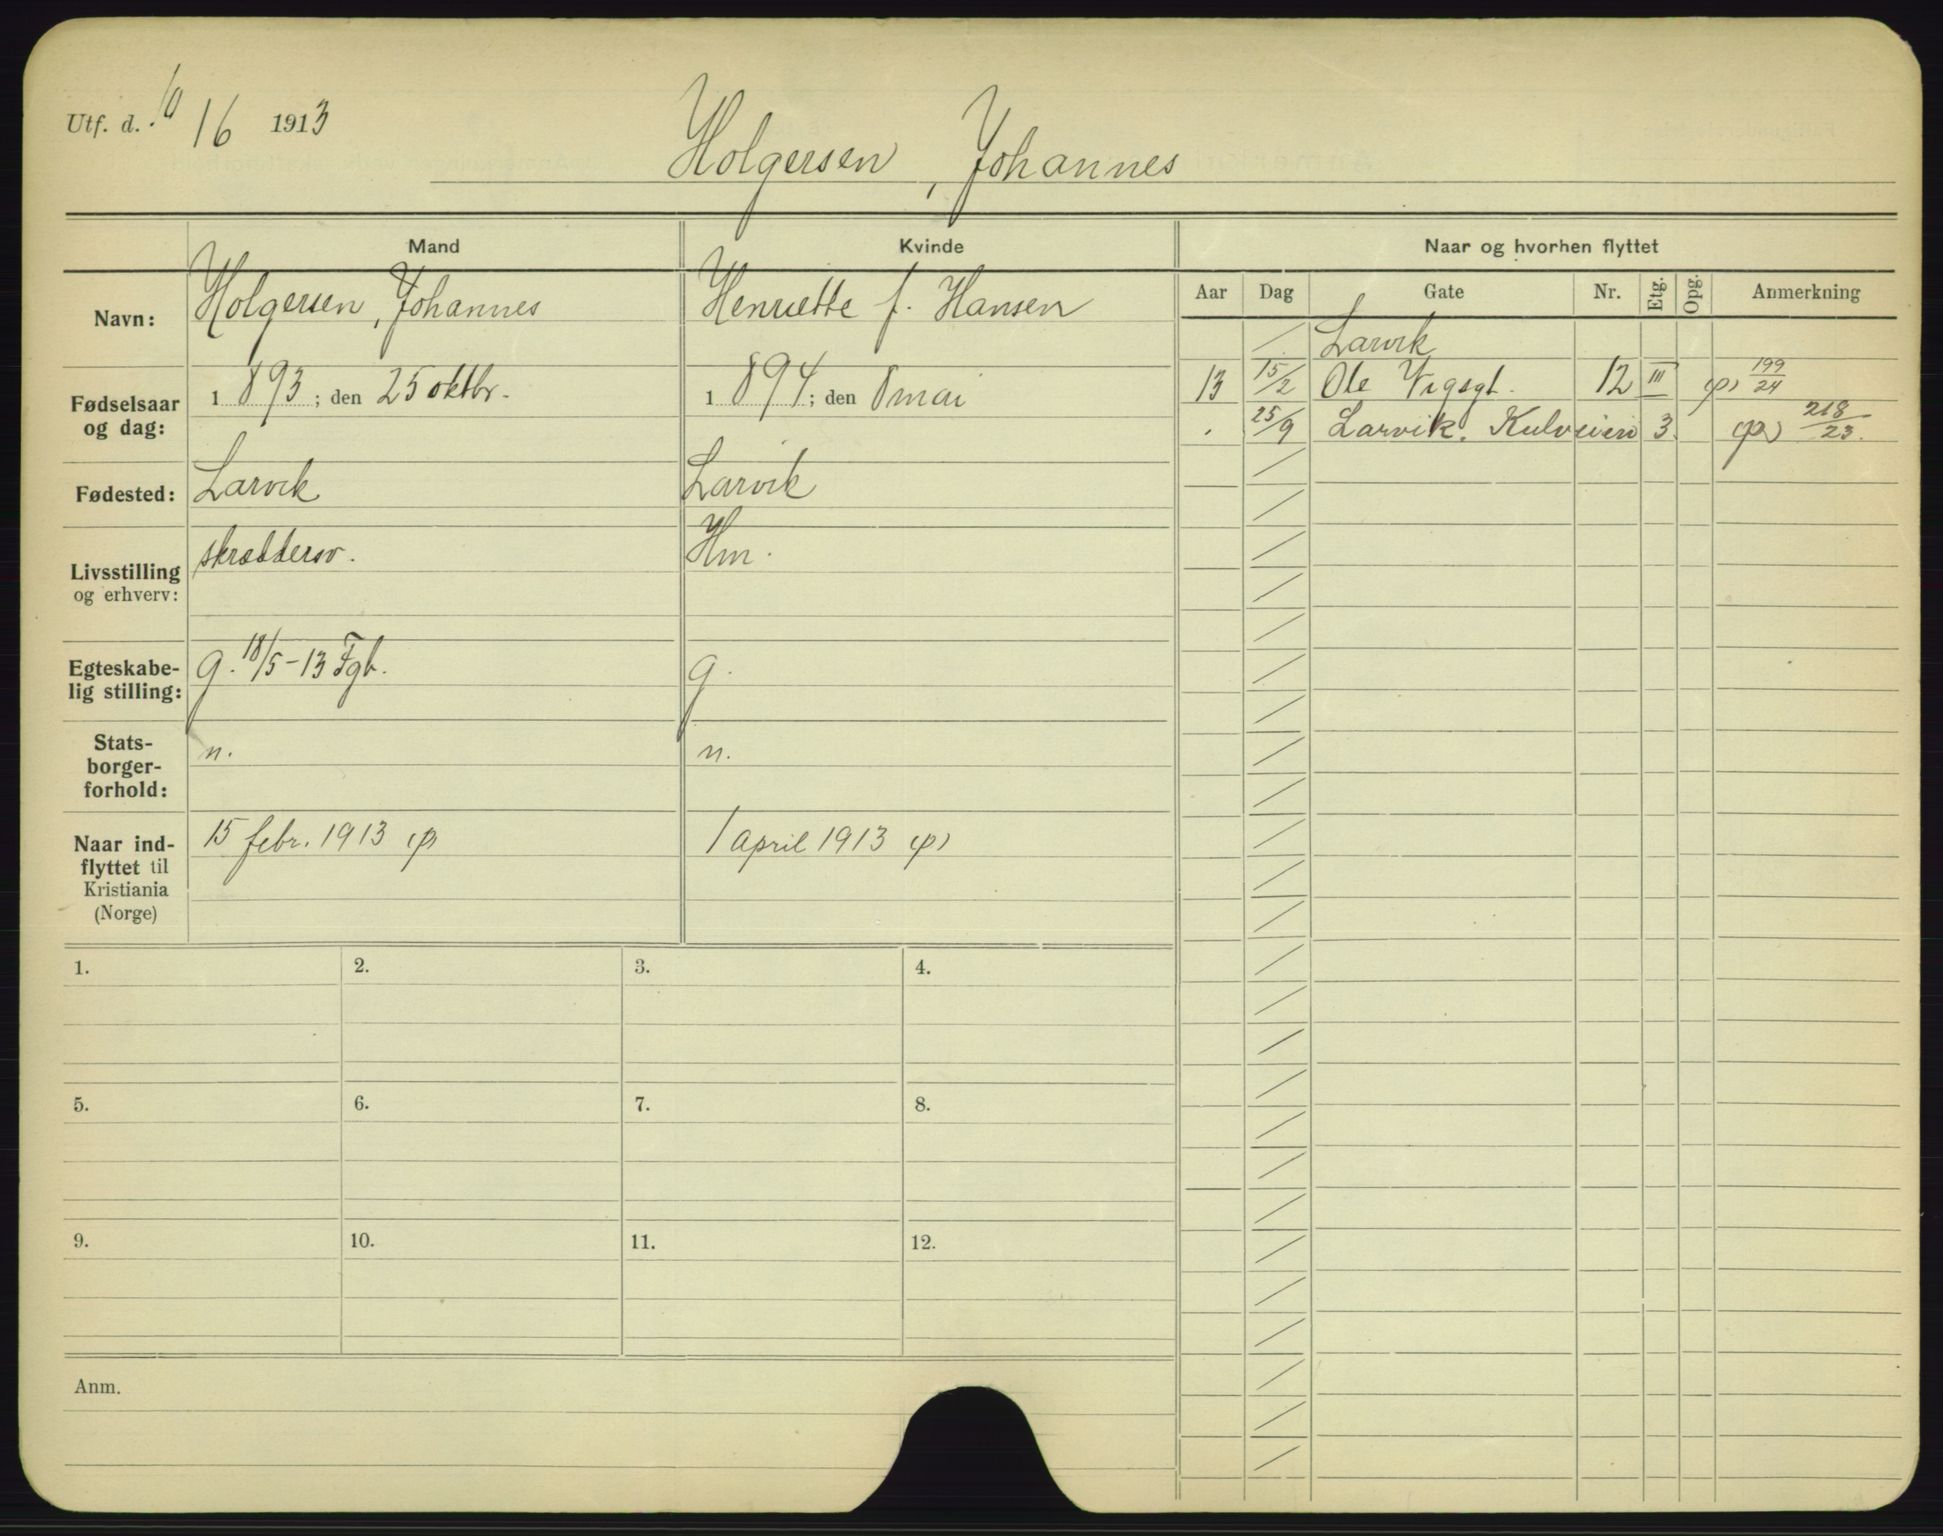 Utf. d. 10/6 1913
Holgersen, Johannes
Mand
Kvinde
Naar og hvorhen flyttet
Navn:
Holgersen, Johannes
Henriette f. Hansen
Aar
Dag
Gate
Nr.
Etg.
Opg.
Anmerkning
Larvik
Fødselsaar
og dag:
1893; den 25 oktbr.
1894; den 8 mai
13 15/2 Ole Vigsgt. 12 III (p) 199/24
. 25/9 Larvik. Kulveien 3. (p) 218/23.
Fødested:
Larvik
Larvik
Livsstilling
og erhverv:
skræddersv.
Hm.
Egteskabe-
lig stilling:
g. 18/5-13 Fgb.
g.
Stats-
borger-
forhold:
n.
n.
Naar ind-
flyttet til
Kristiania
(Norge)
15 febr. 1913 (p)
1 april 1913 (p)
1.
2.
3.
4.
5.
6.
7.
8.
9.
10.
11.
12.
Anm.